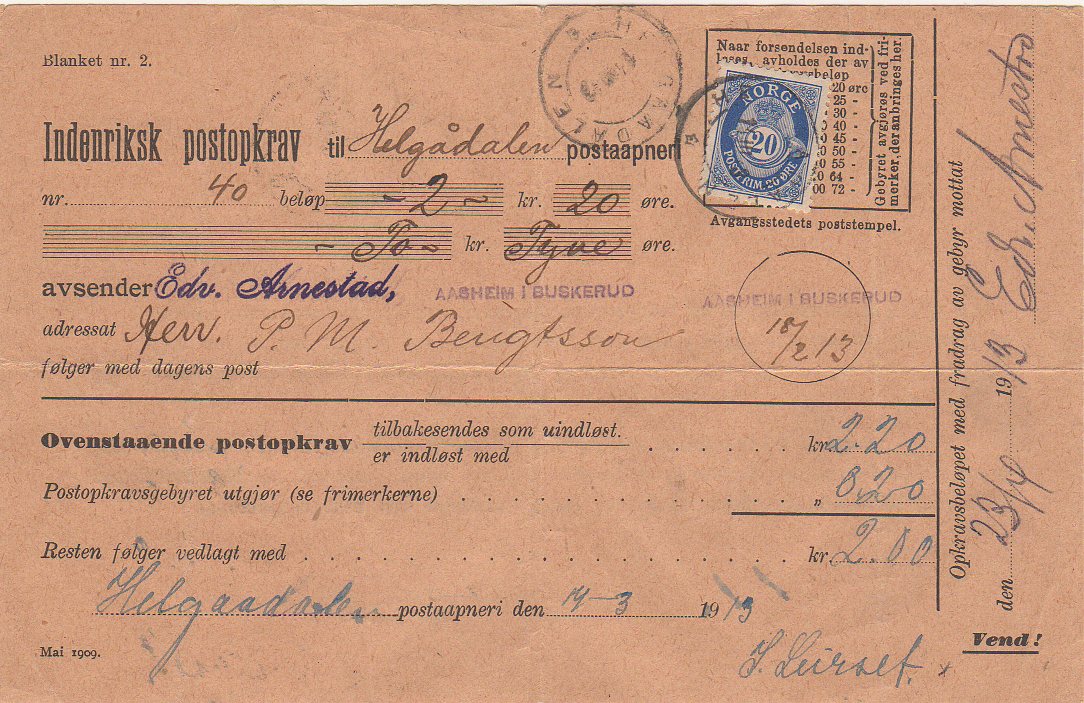 Blanket nr. 2.
HELGAADALEN
Naar forsendelsen ind-
løses, avholdes der av
beløp
20 øre
25 -
30 -
0 40 -
0 45 -
50 -
10 55 -
20 64 -
00 72 -
Gebyret avgjøres ved fri-
merker, der anbringes her.
NORGE
20
POSTFRIM. 20 ØRE
Indenriksk postopkrav til Helgådalen postaapneri
nr. 40 beløp - 2 ~ kr. 20 øre.
~ To ~ kr. Tyve øre.
Avgangsstedets poststempel.
avsender Edv. Arnestad,
AASHEIM I BUSKERUD
AASHEIM I BUSKERUD
18/2 13
adressat Herr. P. M. Bengtsson
følger med dagens post
Ovenstaaende postopkrav tilbakesendes som uindløst.
er indløst med
kr 2.20
Postopkravsgebyret utgjør (se frimerkerne) „ 0,20
Resten følger vedlagt med kr. 2.00
Helgaadalen postaapneri den 14-3 1913
Mai 1909.
Vend!
Opkravsbeløpet med fradrag av gebyr mottat
den 19/13 Edv. Arnestad